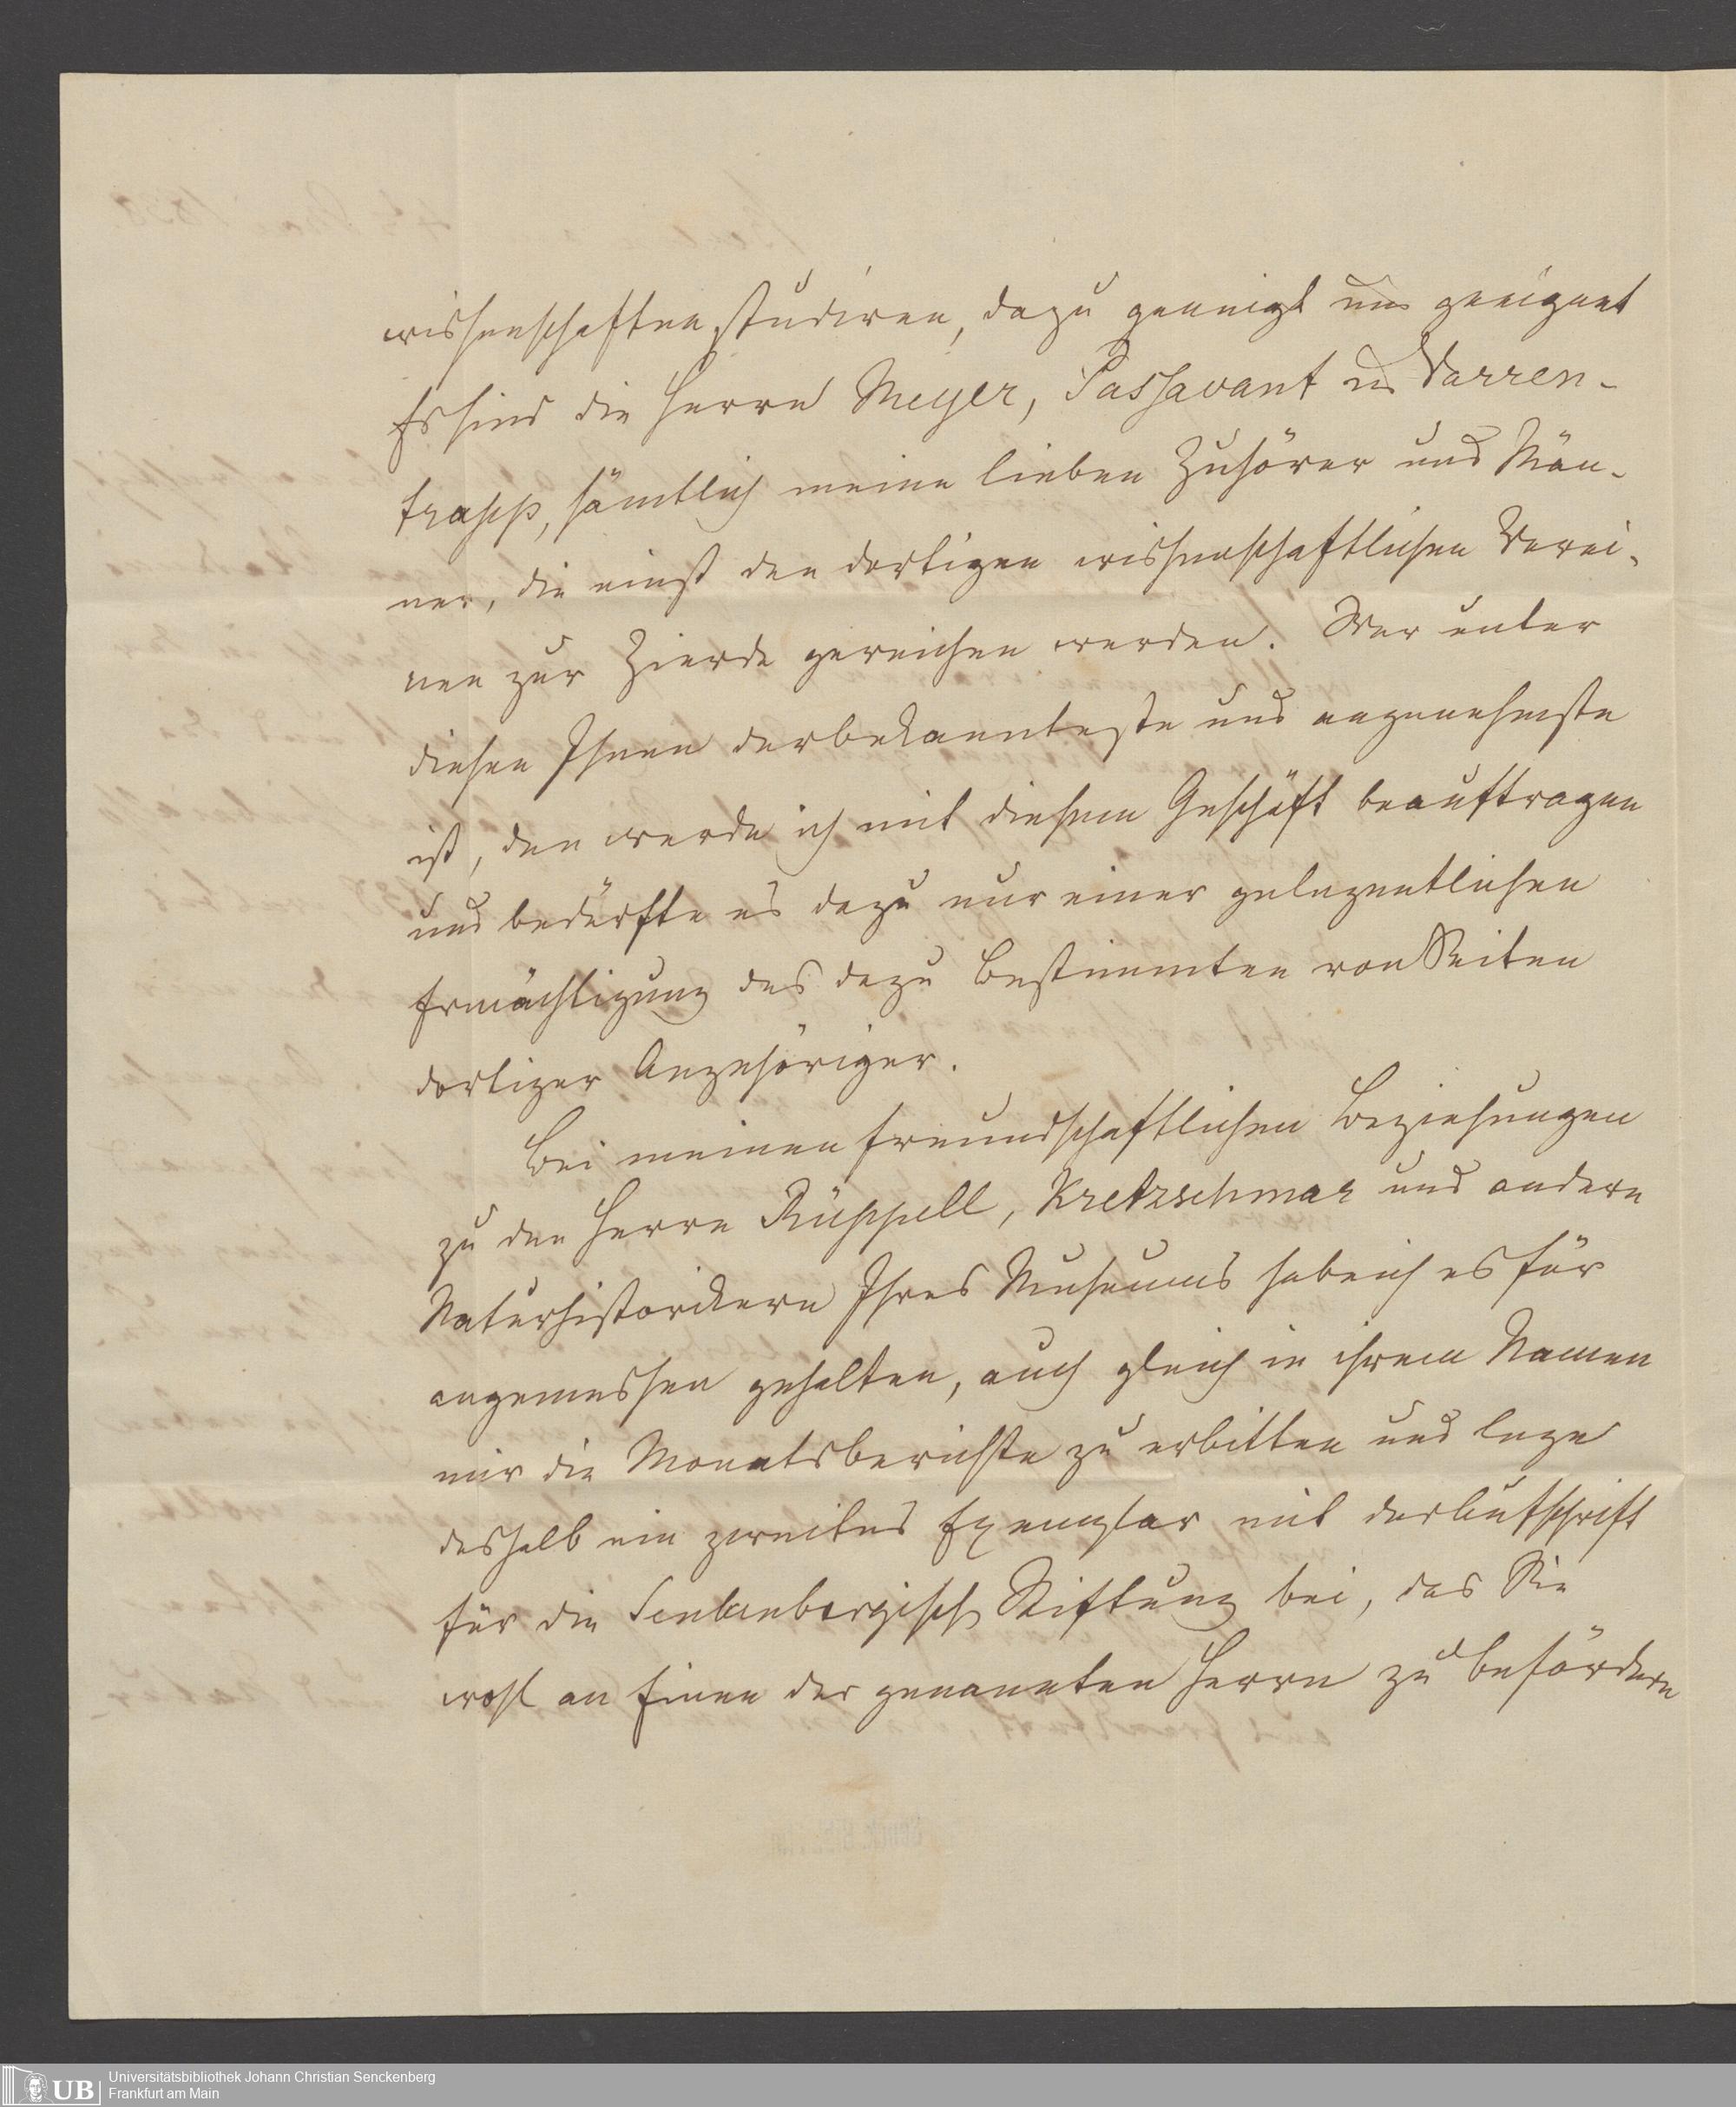 wissenschaften studiren, dazu geneigt und geeignet
Es sind die Herrn Meyer, Passavant u Varren-
trapp, sämtlich meine lieben Zuhörer und Män-
ner, die einst den dortigen wissenschaftlichen Verei-
nen zur Zierde gereichen werden. Wer unter
diesen Ihnen der bekannteste und angenehmste
ist, den werde ich mit diesem Geschäft beauftragen
und bedürfte es dazu nur einer gelegentlichen
Ermächtigung des dazu Bestimmten von Seiten
dortiger Angehöriger.
Bei meinen freundschaftlichen Beziehungen
zu den Herrn Rüppell, Kretzschmar und andern
Naturhistorikern Ihres Museums habe ich es für
angemessen gehalten, auch gleich in ihrem Namen
mir die Monatsberichte zu erbitten und lege
deshalb ein zweites Exemplar mit der Aufschrift
für die Senkenbergisch Stiftung bei, das Sie
wohl an Einen der genannten Herrn zu befördern
UB
Universitätsbibliothek Johann Christian Senckenberg
Frankfurt am Main